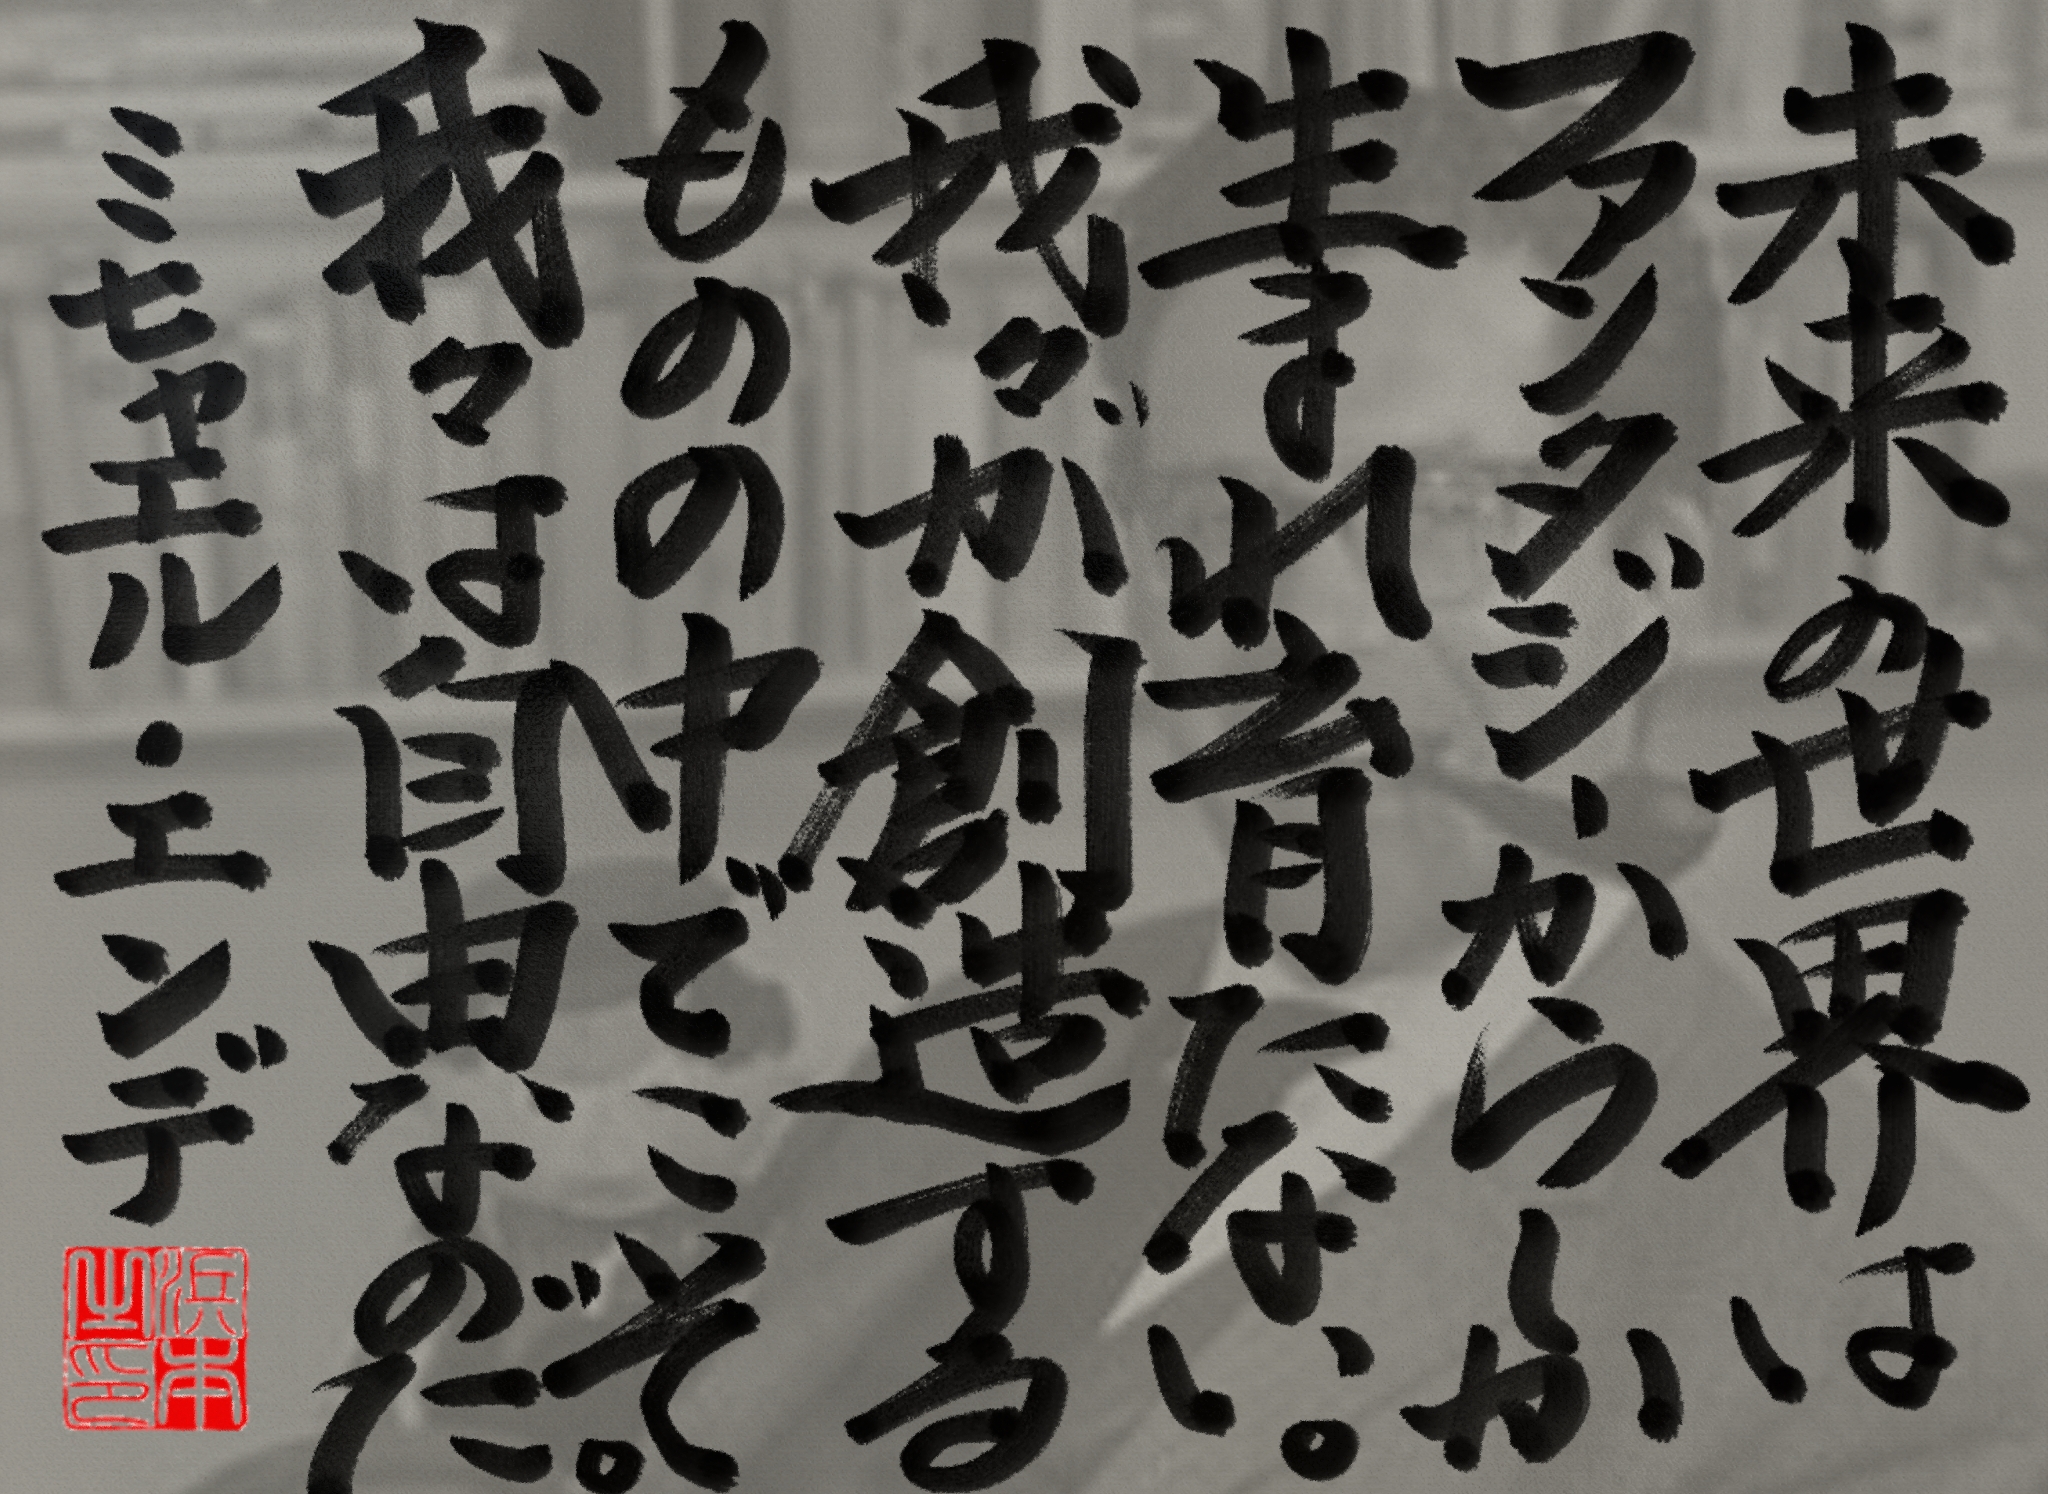 未来の世界は
ファンタジーからしか
生まれ育たない。
我々が創造する
ものの中でこそ
我々は自由なのだ。
ミヒャエル・エンデ
浜本之印